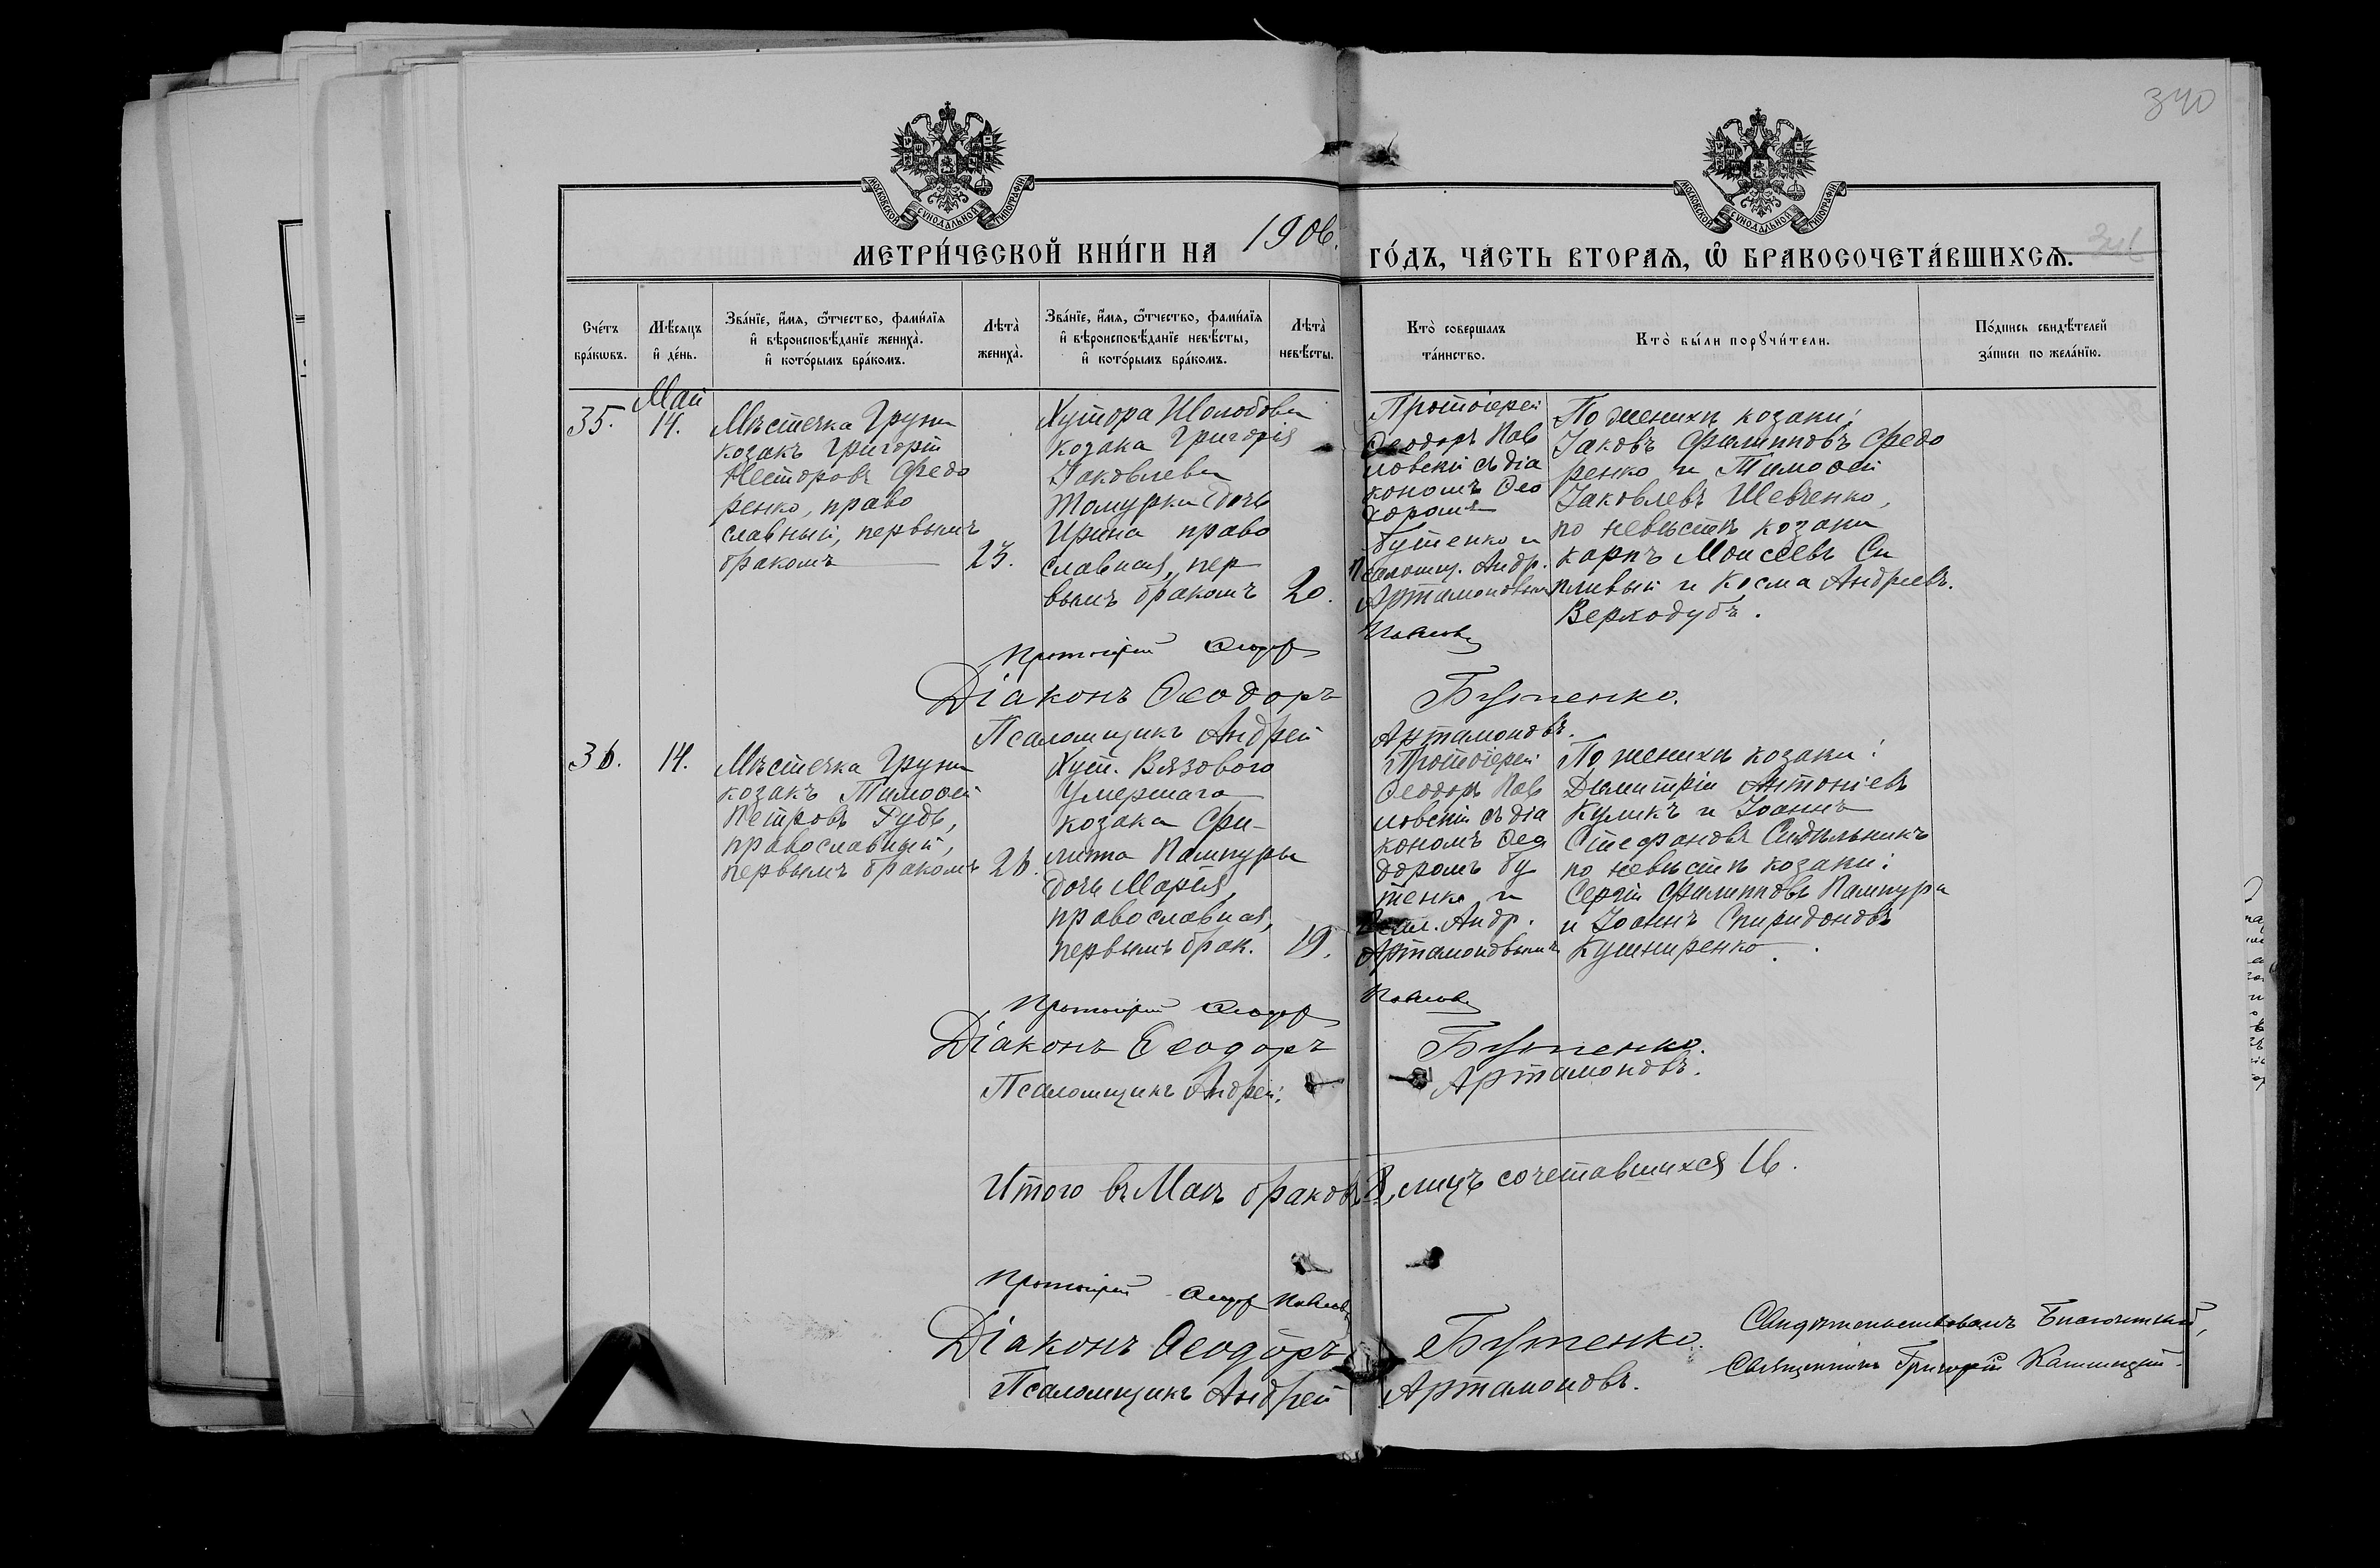 340
МОСКОВСКОЙ СѴНОДАЛЬНОЙ ТИПОГРАФІИ
МОСКОВСКОЙ СѴНОДАЛЬНОЙ ТИПОГРАФІИ
МЕТРИ́ЧЕСКОЙ КНИ́ГИ НА 1906. ГО́ДЪ, ЧА́СТЬ ВТОРАѦ, Ѿ БРАКОСОЧЕТА́ВШИХСѦ.
Сче́тъ
бра́кѡвъ.
Мѣ́сѧцъ
и҆ де́нь.
Зва́нїе, и҆́мѧ, ѻ҆́тчество, фами́лїѧ
и҆ вѣроисповѣ́данїе жениха̀.
и҆ кото́рымъ бра́комъ.
Лѣта̀
жениха̀.
Зва́нїе, и҆́мѧ, ѻ҆́тчество, фами́лїѧ
и҆ вѣроисповѣ́данїе невѣ́сты,
и҆ кото́рымъ бра́комъ.
Лѣта̀
невѣ́сты.
Кто̀ соверша́лъ
та́инство.
Кто̀ бы́ли порꙋчи́тели.
По́дпись свидѣ́телей
за́писи по жела́нїю.
35.
Май
14.
Мѣстечка Груни
козакъ Григорій
Несторовъ Федо
ренко, право
славный, первымъ
бракомъ
23.
Хутора
козака Григорія
Яковлева
дочь
Ирина право
славная, пер
вымъ бракомъ
20.
Протоіерей
Ѳеодоръ Пав
ловскій съ діа
кономъ Ѳео
доромъ
Бутенко и
псаломщ. Андр.
Артамоновымъ
По женихѣ козаки:
Іаковъ Филипповъ Федо
ренко и Тимоѳей
Іаковлевъ Шевченко,
по невѣстѣ козаки
Карпъ Моисеевъ Си
пливый и Косма Андреевъ
Верходубъ.
Протоіерей Ѳеодоръ Павловскій
Діаконъ Ѳеодоръ Бутенко.
Псаломщикъ Андрей Артамоновъ.
36.
14.
Мѣстечка Груни
козакъ Тимоѳей
Петровъ Рудь,
православный,
первымъ бракомъ
26.
Хут. Вязового
умершаго
козака Фи-
липпа Пампуры
дочь Марія,
православная,
первымъ брак.
19.
Протоіерей
Ѳеодоръ Пав
ловскій съ діа
кономъ Ѳео
доромъ Бу
тенко и
Псал. Андр.
Артамоновымъ
По женихѣ козаки:
Димитрій Антоніевъ
Куликъ и Іоаннъ
Стефановъ Сидѣльникъ
по невѣстѣ козаки:
Сергій Филипповъ Пампура
и Іоаннъ Спиридоновъ
Кушниренко.
Протоіерей Ѳеодоръ Павловскій
Діаконъ Ѳеодоръ Бутенко.
Псаломщикъ Андрей Артамоновъ.
Итого въ Маѣ браковъ 8, лицъ сочетавшихся 16.
Протоіерей Ѳеодоръ Павловскій
Діаконъ Ѳеодоръ Бутенко.
Псаломщикъ Андрей Артамоновъ.
Свидѣтельствовалъ Благочинный,
Священникъ Григорій